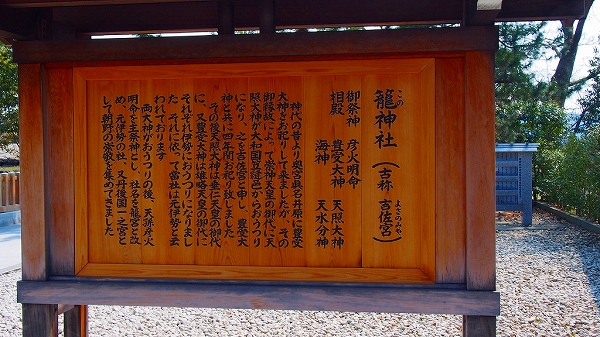 龍神社（古称 吉佐宮）
この
よさのみや
御祭神 彦火明命
相殿 豊受大神 天照大神
海神 天水分神
神代の昔より奥宮眞名井原に豊受
大神をお祀りして来ましたが、その
御縁故によって崇神天皇の御代に天
照大神が大和国笠縫邑からおうつり
になり、之を吉佐宮と申し、豊受大
神と共に四年間お祀り致しました。
その後天照大神は垂仁天皇の御代
に、又豊受大神は雄略天皇の御代に
それぞれ伊勢におうつりになりまし
た。それに依って當社は元伊勢と云
われております。
両大神がおうつりの後、天孫彦火
明命を主祭神とし、社名を籠宮と改
め、元伊勢の社、又丹後國一之宮と
して朝野の崇敬を集めてきました